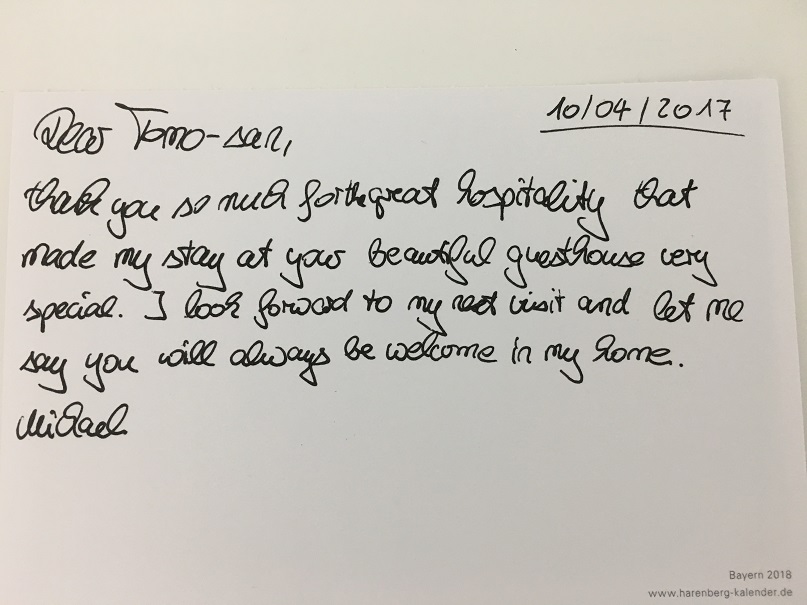 10/04/2017
Dear Tomo-san,
thank you so much for the great hospitality that
made my stay at your beautiful guesthouse very
special. I look forward to my next visit and let me
say you will always be welcome in my home.
Michael
Bayern 2018
www.harenberg-kalender.de